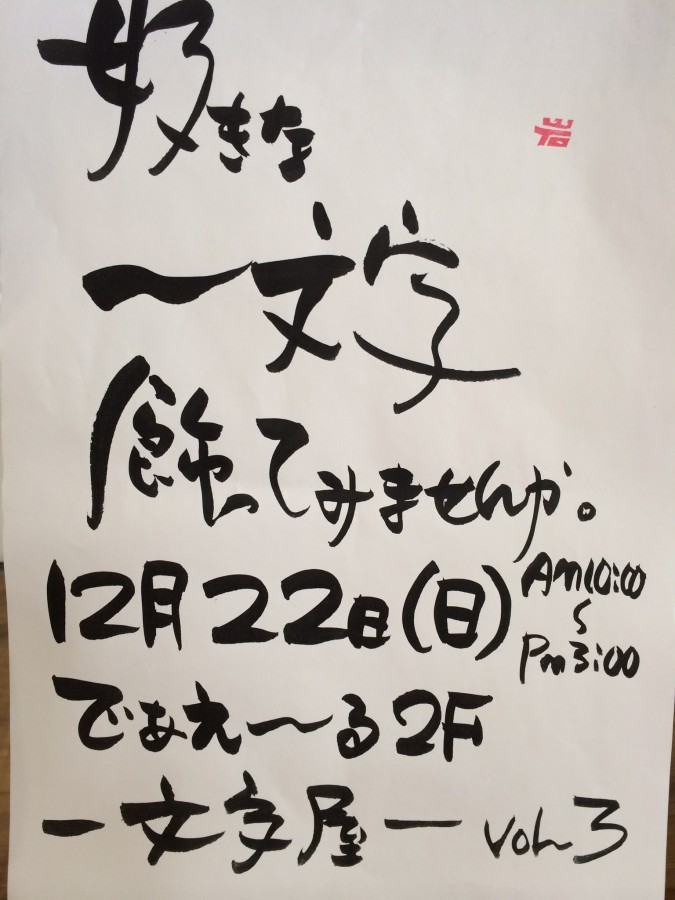 好きな
岩
一文字
飾ってみませんか。
12月22日(日) Am10:00
〜
Pm3:00
でぁえ〜る2F
一文字屋ー Vol.3